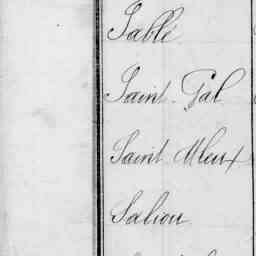 Sablé
Saint-Gal
Saint Meux
Saliou